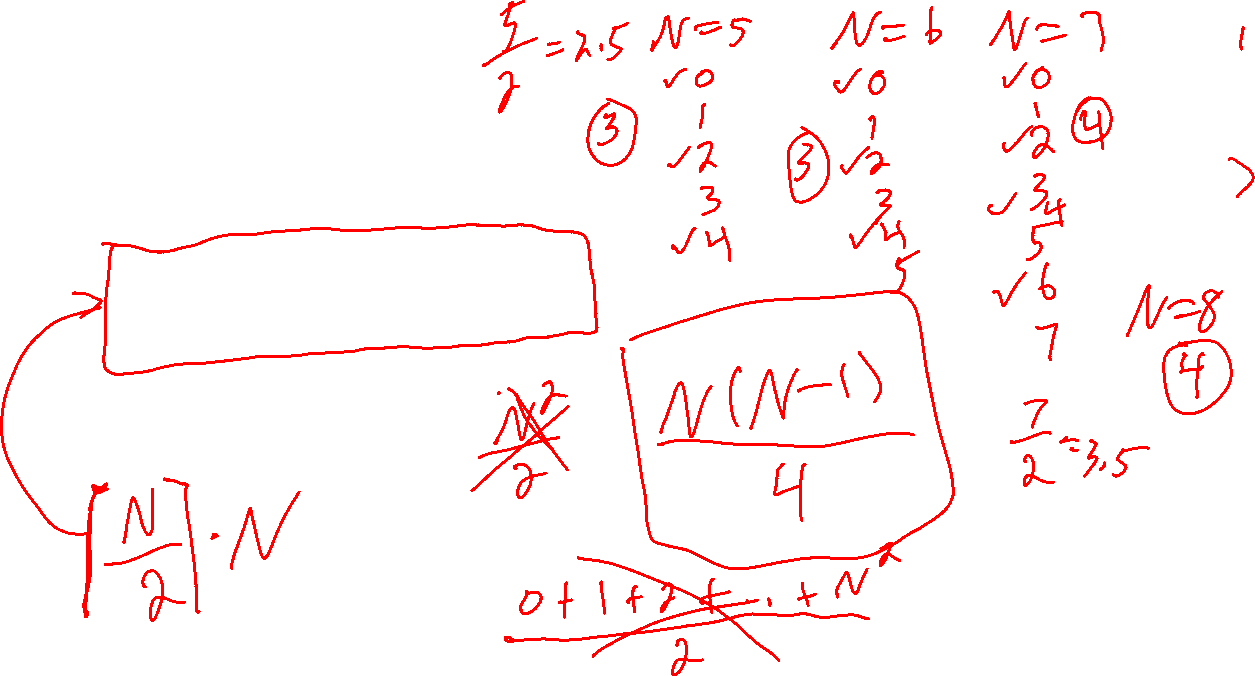 5/2 = 2.5
N=5
✓0
1
✓2
3
✓4
③
N=6
✓0
1
✓2
3
✓4
5
③
N=7
✓0
1
✓2
✓3
4
5
✓6
7
④
7/2 = 3.5
N=8
④
N²/2
N(N-1)/4
⌈N/2⌉ · N
(0+1+2+..+N²)/2